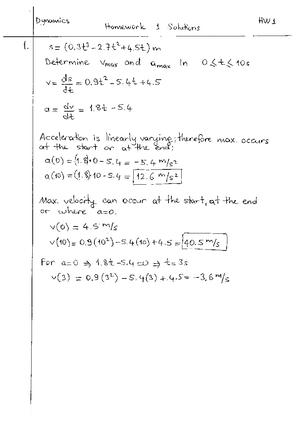 Dynamics Homework 1 Solutions HW1
1. s = (0.3t³ - 2.7t² + 4.5t) m
Determine vmax and amax in 0 ≤ t ≤ 10s
v = ds/dt = 0.9t² - 5.4t + 4.5
a = dv/dt = 1.8t - 5.4
Acceleration is linearly varying; therefore max. occurs
at the start or at the end:
a(0) = (1.8)·0 - 5.4 = -5.4 m/s²
a(10) = (1.8)·10 - 5.4 = 12.6 m/s²
Max. velocity can occur at the start, at the end
or where a=0.
v(0) = 4.5 m/s
v(10) = 0.9(10²) - 5.4(10) + 4.5 = 40.5 m/s
For a=0 ⇒ 1.8t - 5.4 = 0 ⇒ t = 3s
v(3) = 0.9(3²) - 5.4(3) + 4.5 = -3,6 m/s